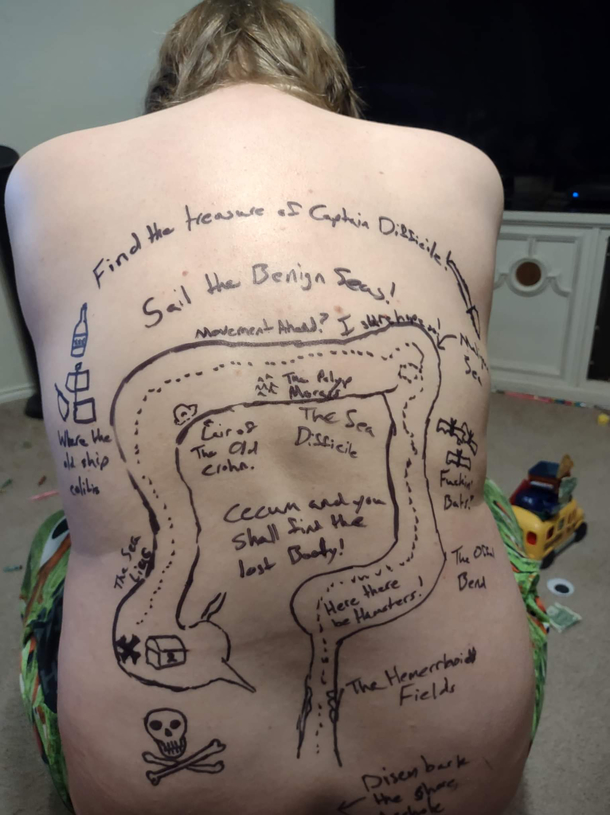 Find the treasure of Captain Disficile!
Sail the Benign Seas!
Movement Ahead? I sure hope so!
Sea
The Polyp
Morass
Lair of
The Old
Crohn.
The Sea
Disficile
Where the
old ship
colitis
Fuckin'
Bats?
Cecum and you
shall find the
lost Booty!
The Sea
The
Bend
Here there
be Hamsters!
The Hemorrhoid
Fields
Disembark
the shore,